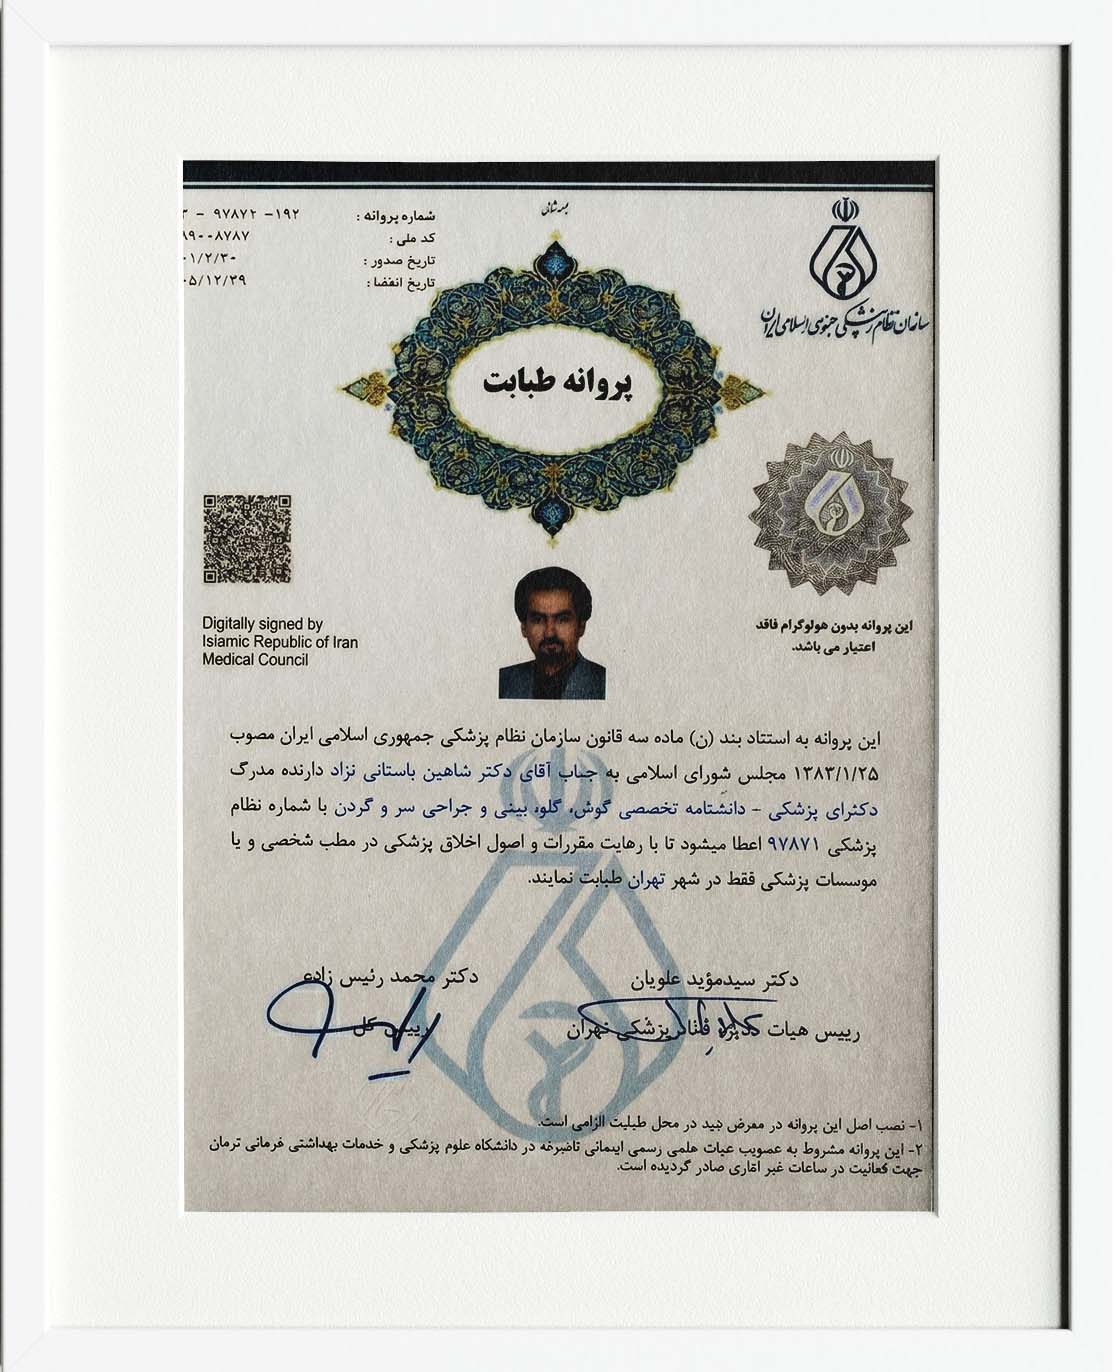 بسمه تعالی
سازمان نظام پزشکی جمهوری اسلامی ایران
شماره پروانه : ۹۷۸۷۲ -۱۹۲ -
کد ملی : ۹۰۰۸۷۸۷
تاریخ صدور : ۰۱/۲/۳۰
تاریخ انقضا : ۰۵/۱۲/۲۹
پروانه طبابت
Digitally signed by
Islamic Republic of Iran
Medical Council
این پروانه بدون هولوگرام فاقد
اعتبار می باشد.
این پروانه به استناد بند (ن) ماده سه قانون سازمان نظام پزشکی جمهوری اسلامی ایران مصوب
۱۳۸۳/۱/۲۵ مجلس شورای اسلامی به جناب آقای دکتر شاهین باستانی نژاد دارنده مدرگ
دکترای پزشکی - دانشتامه تخصصی گوش، گلو، بینی و جراحی سر و گردن با شماره نظام
پزشکی ۹۷۸۷۱ اعطا میشود تا با رهایت مقررات و اصول اخلاق پزشکی در مطب شخصی و یا
موسسات پزشکی فقط در شهر تهران طبابت نمایند.
دکتر سیدمؤید علویان
رییس هیات پزشکی تهران
دکتر محمد رئیس زاده
رییس کل
۱- نصب اصل این پروانه در معرض دید در محل طبابت الزامی است.
۲- این پروانه مشروط به عصویب عیات هلمی رسمی در دانشگاه علوم پزشکی و خدمات بهداشتی
جهت فعالیت در ساعات غیر صادر گردیده است.